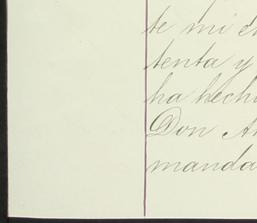 te mi
tenta y
ha hech
Don
manda